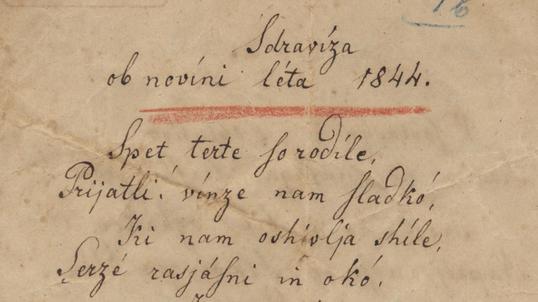 16
Sdravíza
ob novíni léta 1844.
Spet terte ſo rodíle,
Prijatli! vínze nam ſladkó,
Ki nam oshivlja shíle,
Serzé rasjáſni in okó.